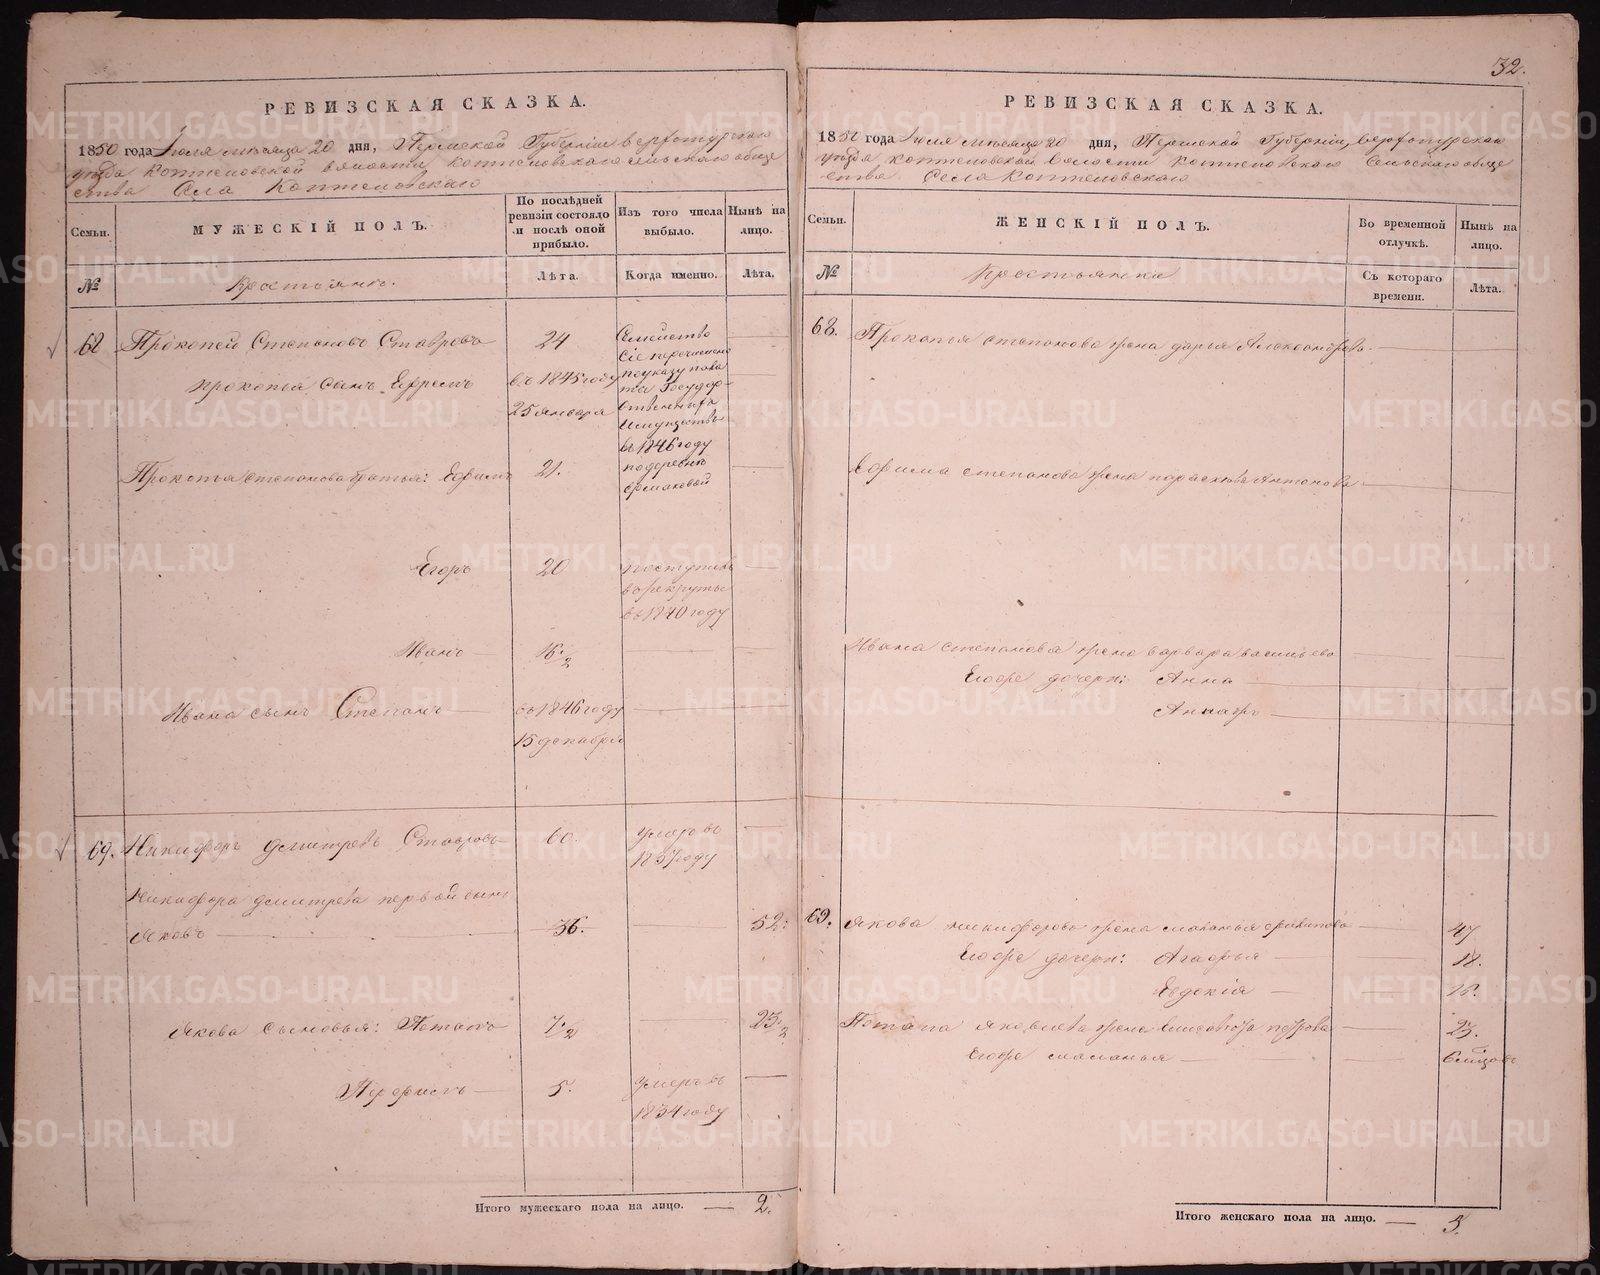 РЕВИЗСКАЯ СКАЗКА.
1850 года Июля месяца 20 дня, Пермской Губерніи верхотурскаго
уезда коптеловской волости коптеловскаго сельскаго обще
ства Села Коптеловскаго
Семьи.
МУЖЕСКІЙ ПОЛЪ.
По послѣдней ревизіи состояло и послѣ оной прибыло.
Изъ того числа выбыло.
Нынѣ на лицо.
№
Крестьяне.
Лѣта.
Когда именно.
Лѣта.
68 Прокопей Степановъ Ставровъ 24
Семейство
сіе перечислено
поуказу пала
ты Государ-
ственныхъ
Имуществъ
въ 1846 году
подеревнѣ
ермаковой
Прокопья сынъ Ефремъ въ 1845 году
25 января
Прокопья степанова братья: Ефимъ 21.
Егоръ 20
поступилъ
врекруты
въ 1840 году
Иванъ 16 1/2
Ивана сынъ Степанъ въ 1846 году
15 декабря
69. Никифоръ дмитревъ Ставровъ 60.
умеръ въ
1837 году
Никифора дмитрева первой сынъ
Яковъ 36. 52.
Якова сыновья: Потапъ 7 1/2 23 1/2
5.
умеръ въ
1834 году
Итого мужескаго пола на лицо. 2.
32.
РЕВИЗСКАЯ СКАЗКА.
1850 года Июля месяца 20 дня, Пермской Губерніи, верхотурскаго
уезда коптеловской Волости Коптеловскаго Сельскаго обще
ства Села Коптеловскаго
Семьи.
ЖЕНСКІЙ ПОЛЪ.
Во временной отлучкѣ.
Нынѣ на лицо.
№
Крестьянки
Съ котораго времени.
Лѣта.
68. Прокопья степанова жена дарья Александрова
Ефима степанова жена параскева Антонова
Ивана степанова жена варвара васильева
Егоже дочери: Анна
69. Якова никифорова жена маланья филипова 47
Егоже дочери: Агафья 18.
Евдокія
Потапа яковлева жена Елисавета петрова 23.
Егоже маланья 6 мѣсяцовъ
Итого женскаго пола на лицо. 5.
METRIKI.GASO-URAL.RU